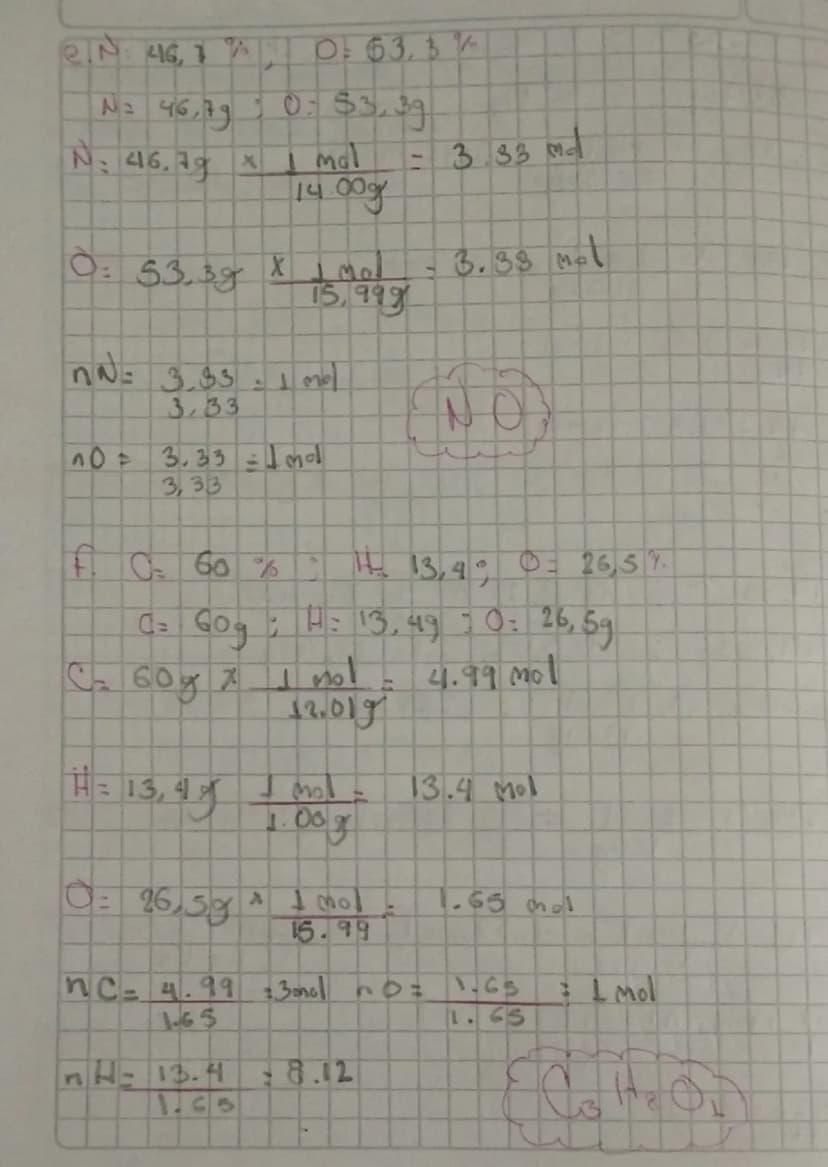 e. N: 46,7 %, O= 53,3 %
N= 46,7g ; O= 53,3g
N: 46.7g x 1 mol / 14.00g = 3.33 mol
O= 53,3g x 1 mol / 15,99g = 3.33 mol
nN= 3,33 / 3,33 = 1 mol
N O
nO = 3.33 / 3,33 = 1 mol
f. C= 60 % ; H= 13,4 ; O= 26,5 %.
C= 60g ; H= 13,4g ; O= 26,5g
C= 60g x 1 mol / 12.01g = 4.99 mol
H= 13,4g 1 mol / 1.00g = 13.4 mol
O= 26,5g x 1 mol / 15.99 = 1.65 mol
nC= 4.99 / 1.65 = 3mol nO= 1.65 / 1.65 = 1 Mol
nH= 13.4 / 1.65 = 8.12
C3 H8 O1